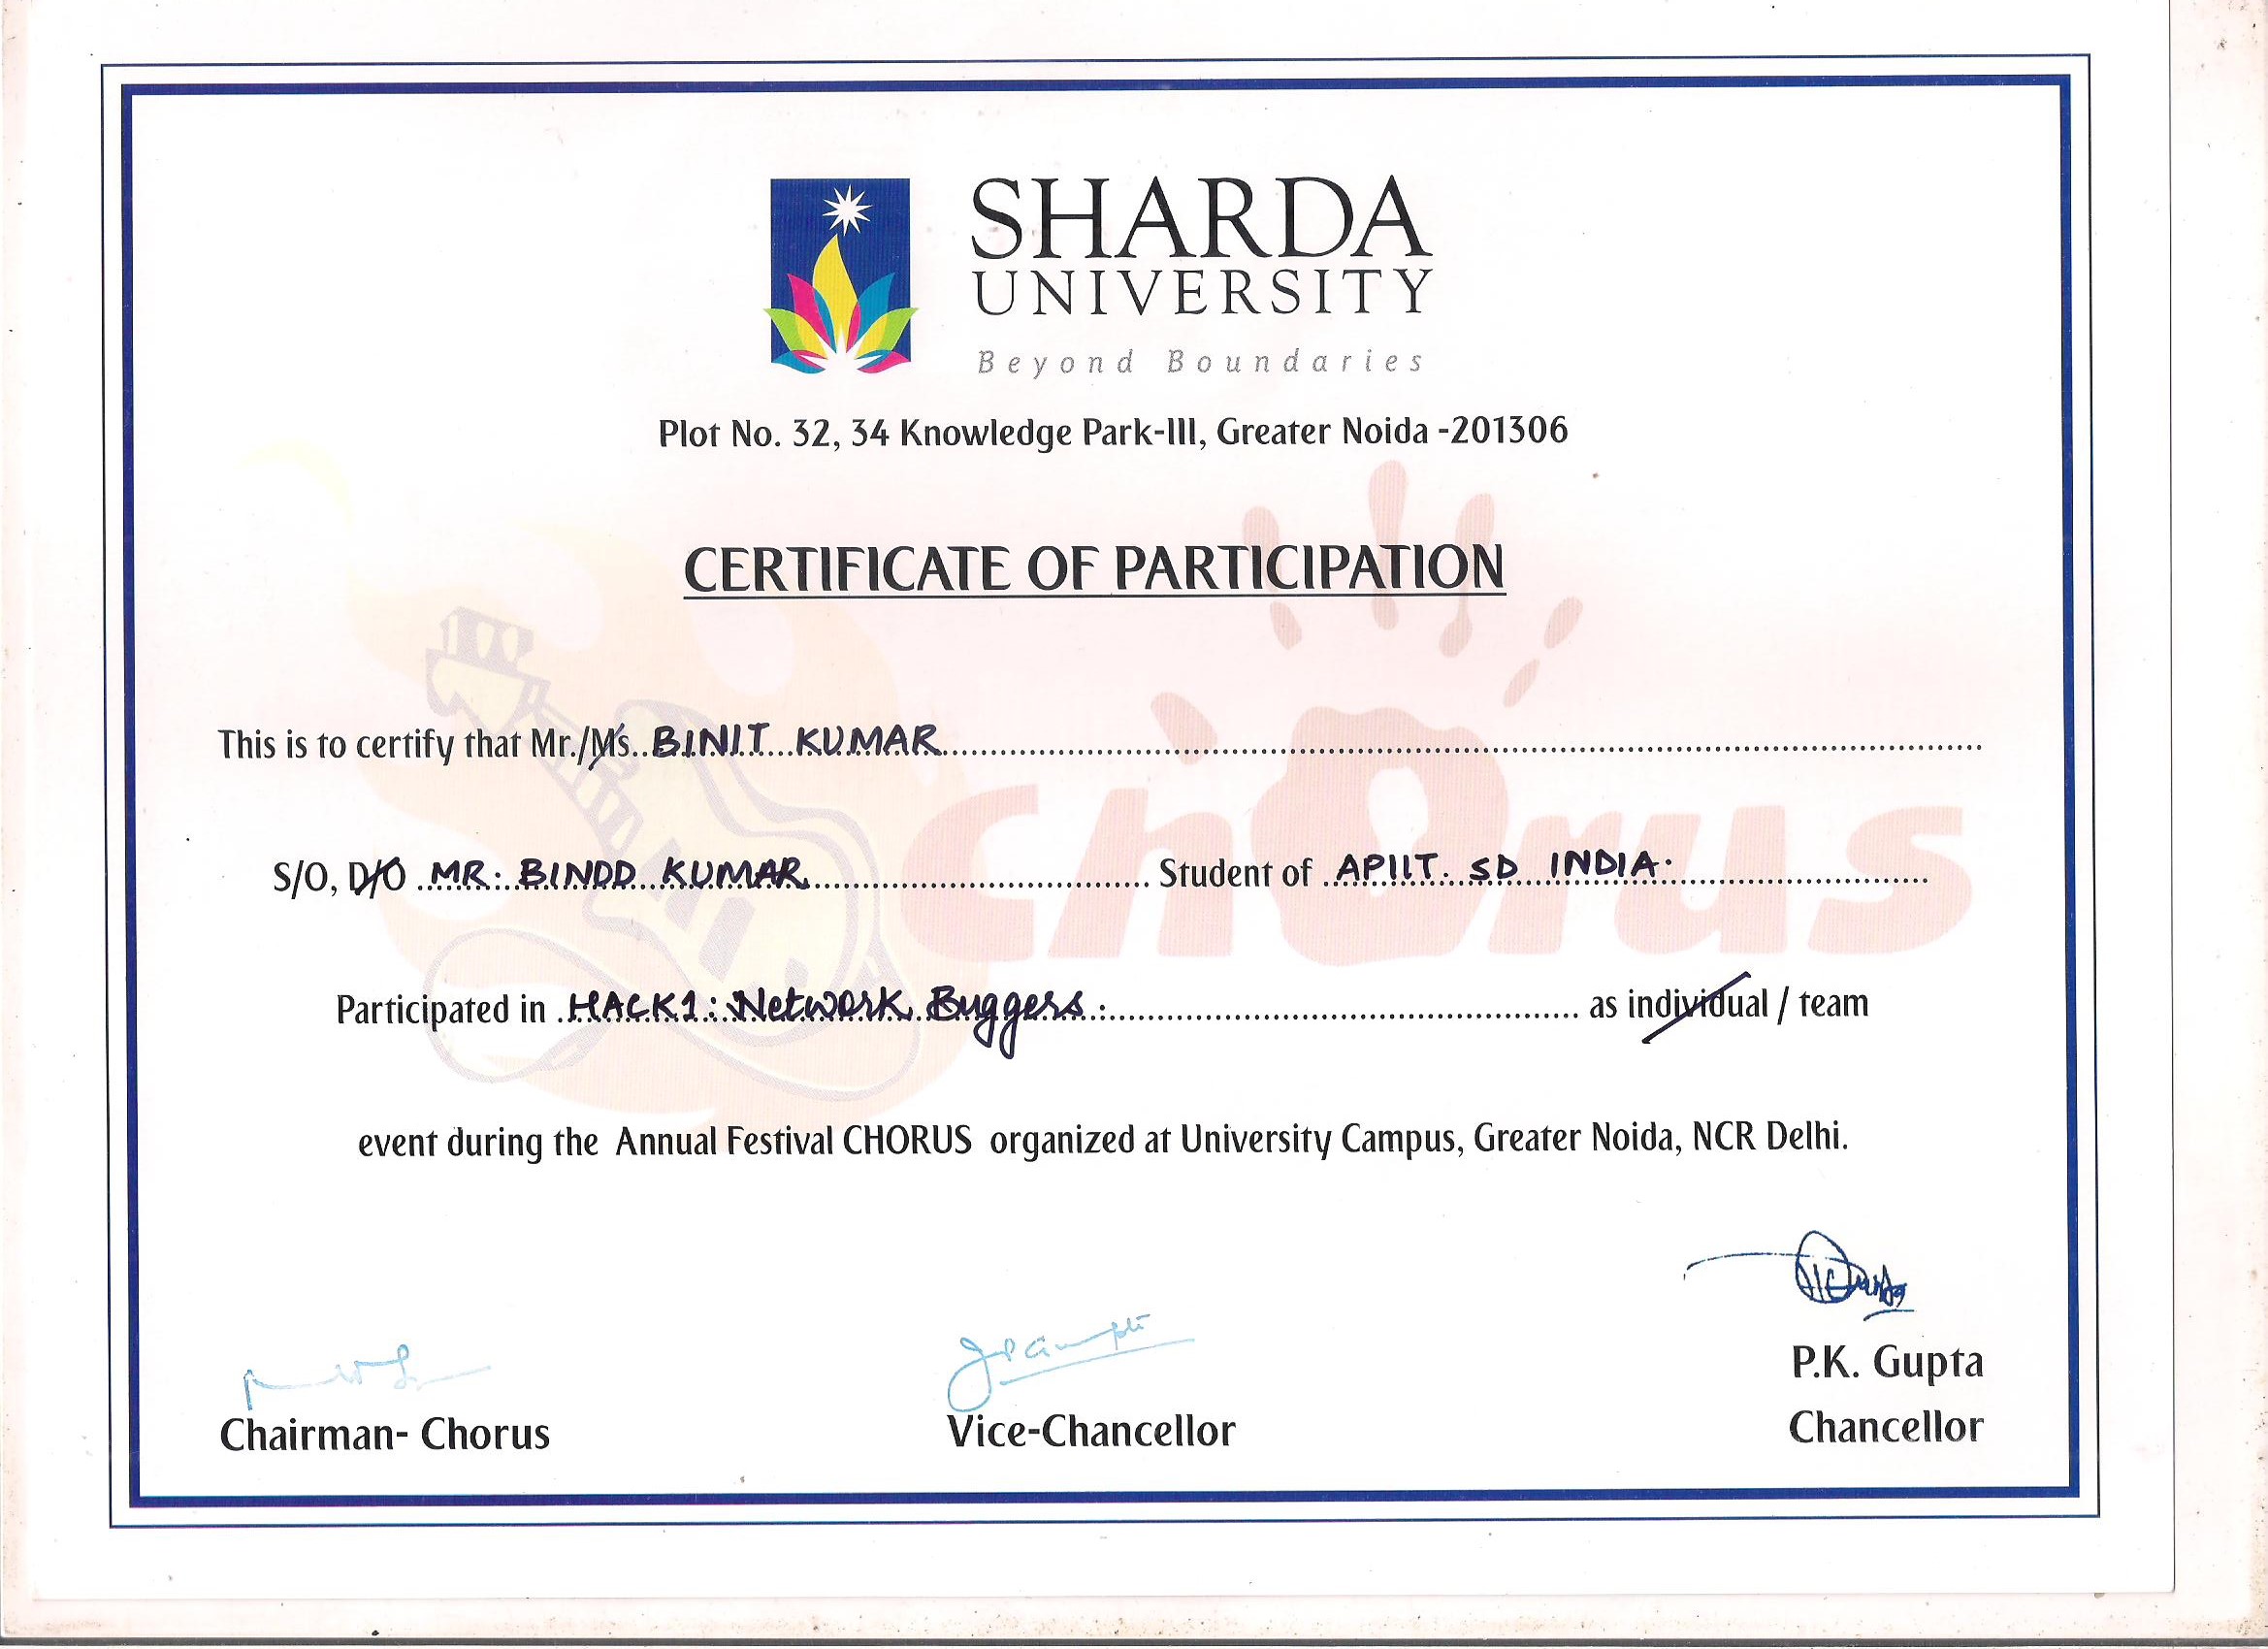 SHARDA
UNIVERSITY
Beyond Boundaries
Plot No. 32, 34 Knowledge Park-III, Greater Noida -201306
CERTIFICATE OF PARTICIPATION
This is to certify that Mr./Ms. BINIT KUMAR
S/O, D/O MR. BINOD KUMAR Student of APIIT SD INDIA.
Participated in HACK1: Network Buggers. as individual / team
chorus
event during the Annual Festival CHORUS organized at University Campus, Greater Noida, NCR Delhi.
P.K. Gupta
Chairman- Chorus Vice-Chancellor Chancellor